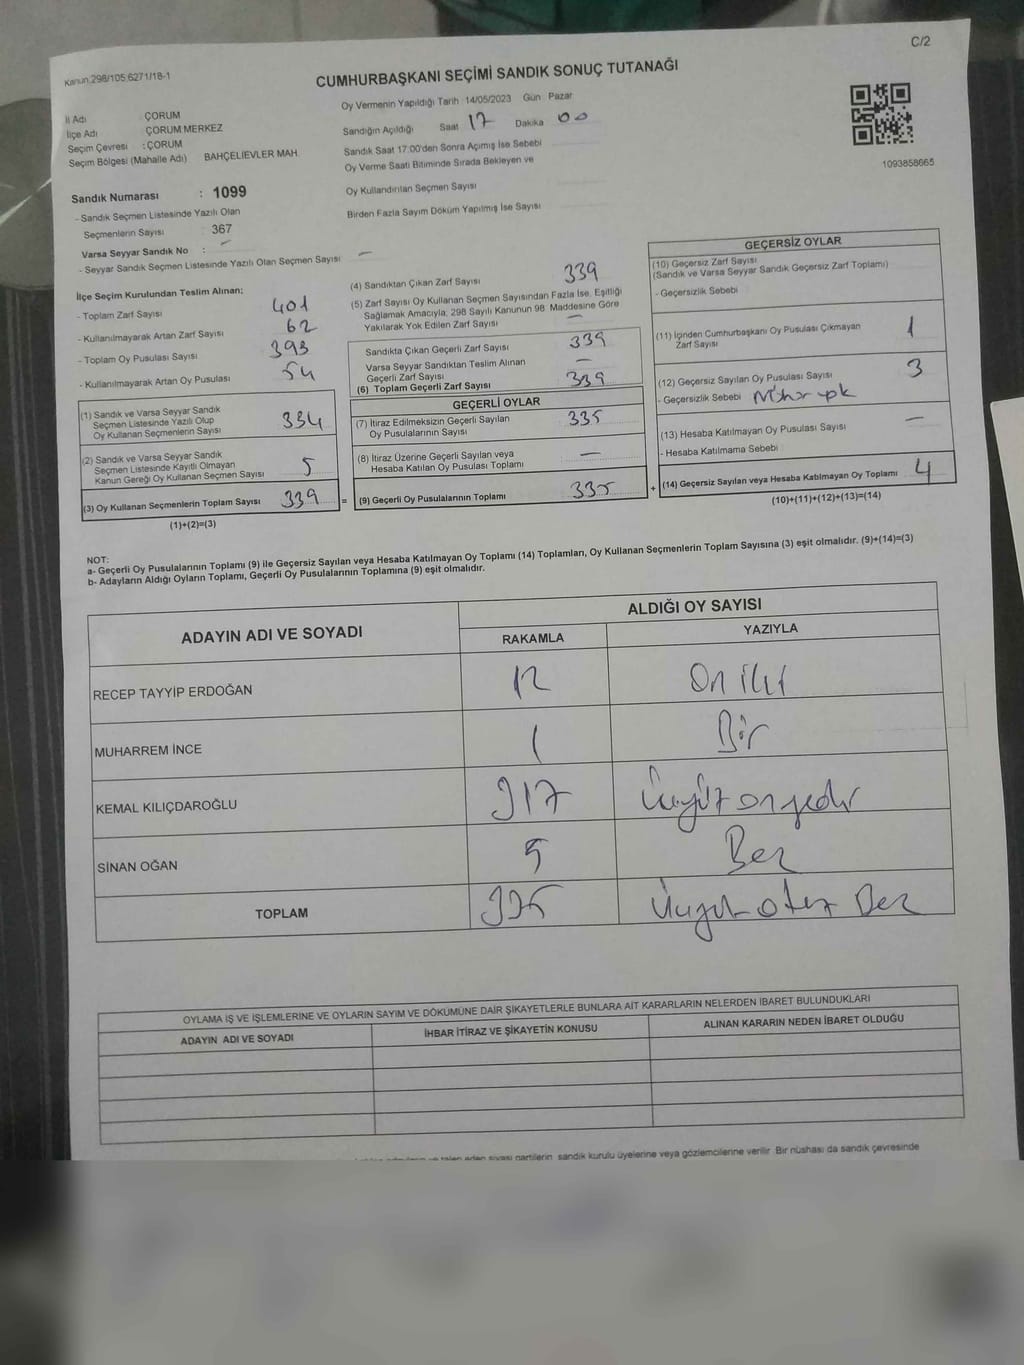 C/2
Kanun:298/105.6271/18-1
CUMHURBAŞKANI SEÇİMİ SANDIK SONUÇ TUTANAĞI
İl Adı ÇORUM
İlçe Adı ÇORUM MERKEZ
Seçim Çevresi : ÇORUM
Seçim Bölgesi (Mahalle Adı) BAHÇELİEVLER MAH.
Oy Vermenin Yapıldığı Tarih 14/05/2023 Gün Pazar
Sandığın Açıldığı Saat 17 Dakika 00
Sandık Saat 17:00'den Sonra Açımış İse Sebebi
Oy Verme Saati Bitiminde Sırada Bekleyen ve
Oy Kullandırılan Seçmen Sayısı
Birden Fazla Sayım Döküm Yapılmış İse Sayısı
1093858665
Sandık Numarası : 1099
- Sandık Seçmen Listesinde Yazılı Olan
Seçmenlerin Sayısı 367
Varsa Seyyar Sandık No : -
- Seyyar Sandık Seçmen Listesinde Yazılı Olan Seçmen Sayısı -
İlçe Seçim Kurulundan Teslim Alınan:
- Toplam Zarf Sayısı 401
- Kullanılmayarak Artan Zarf Sayısı 62
- Toplam Oy Pusulası Sayısı 393
- Kullanılmayarak Artan Oy Pusulası 54
(1) Sandık ve Varsa Seyyar Sandık
Seçmen Listesinde Yazılı Olup
Oy Kullanan Seçmenlerin Sayısı 334
(2) Sandık ve Varsa Seyyar Sandık
Seçmen Listesinde Kayıtlı Olmayan
Kanun Gereği Oy Kullanan Seçmen Sayısı 5
(3) Oy Kullanan Seçmenlerin Toplam Sayısı 339
(1)+(2)=(3)
=
(4) Sandıktan Çıkan Zarf Sayısı 339
(5) Zarf Sayısı Oy Kullanan Seçmen Sayısından Fazla İse, Eşitliği
Sağlamak Amacıyla; 298 Sayılı Kanunun 98. Maddesine Göre
Yakılarak Yok Edilen Zarf Sayısı -
Sandıkta Çıkan Geçerli Zarf Sayısı 339
Varsa Seyyar Sandıktan Teslim Alınan
Geçerli Zarf Sayısı -
(6) Toplam Geçerli Zarf Sayısı 339
GEÇERLİ OYLAR
(7) İtiraz Edilmeksizin Geçerli Sayılan
Oy Pusulalarının Sayısı 335
(8) İtiraz Üzerine Geçerli Sayılan veya
Hesaba Katılan Oy Pusulası Toplamı -
(9) Geçerli Oy Pusulalarının Toplamı 335
+
GEÇERSİZ OYLAR
(10) Geçersiz Zarf Sayısı
(Sandık ve Varsa Seyyar Sandık Geçersiz Zarf Toplamı)
- Geçersizlik Sebebi
(11) İçinden Cumhurbaşkanı Oy Pusulası Çıkmayan
Zarf Sayısı 1
(12) Geçersiz Sayılan Oy Pusulası Sayısı 3
- Geçersizlik Sebebi
(13) Hesaba Katılmayan Oy Pusulası Sayısı -
- Hesaba Katılmama Sebebi
(14) Geçersiz Sayılan veya Hesaba Katılmayan Oy Toplamı 4
(10)+(11)+(12)+(13)=(14)
NOT:
a- Geçerli Oy Pusulalarının Toplamı (9) ile Geçersiz Sayılan veya Hesaba Katılmayan Oy Toplamı (14) Toplamları, Oy Kullanan Seçmenlerin Toplam Sayısına (3) eşit olmalıdır. (9)+(14)=(3)
b- Adayların Aldığı Oyların Toplamı, Geçerli Oy Pusulalarının Toplamına (9) eşit olmalıdır.
ADAYIN ADI VE SOYADI ALDIĞI OY SAYISI
RAKAMLA YAZIYLA
RECEP TAYYİP ERDOĞAN 12 On iki
MUHARREM İNCE 1 Bir
KEMAL KILIÇDAROĞLU 317 Üçyüz onyedi
SİNAN OĞAN 5 Beş
TOPLAM 335 Üçyüz otuz Beş
OYLAMA İŞ VE İŞLEMLERİNE VE OYLARIN SAYIM VE DÖKÜMÜNE DAİR ŞİKAYETLERLE BUNLARA AİT KARARLARIN NELERDEN İBARET BULUNDUKLARI
ADAYIN ADI VE SOYADI İHBAR İTİRAZ VE ŞİKAYETİN KONUSU ALINAN KARARIN NEDEN İBARET OLDUĞU
talep eden siyasi partilerin sandık kurulu üyelerine veya gözlemcilerine verilir. Bir nüshası da sandık çevresinde